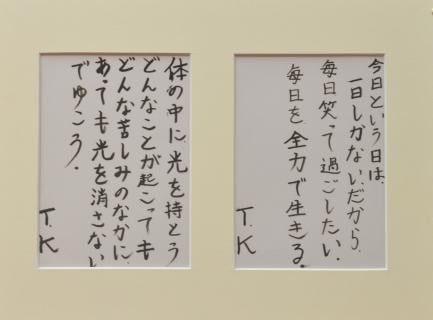 今日という日は、
一日しかない。だから、
毎日笑って過ごしたい。
毎日を全力で生きる。
T.K
体の中に光を持とう
どんなことが起こっても
どんな苦しみのなかに
あっても光を消さない
でゆこう。
T.K